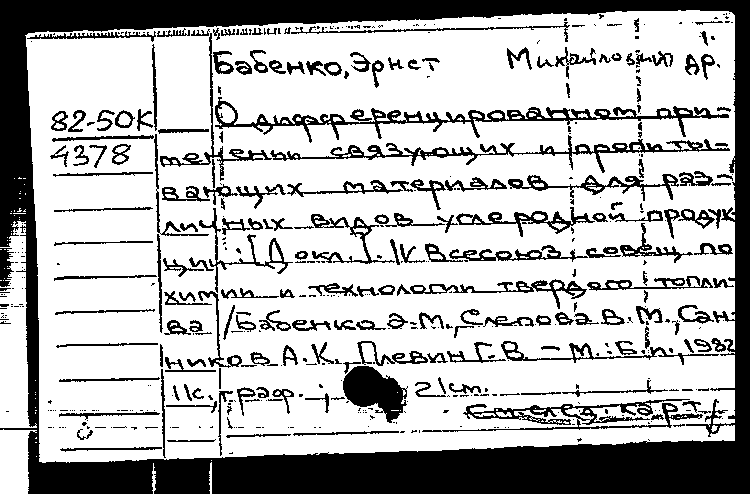 1.
Бабенко, Эрнст Михайлович и др.
82-50К О дифференцированном при-
4378 менении связующих и пропиты-
вающих материалов для раз-
личных видов углеродной продук
ции: [Докл.]. IV Всесоюз. совещ. по
химии и технологии твердого топли-
ва / Бабенко Э.М., Слепова В.М., Сан-
ников А.К., Плевин Г.В. – М.: Б.и., 1982
11с., граф.; 21см.
См. след. карт.